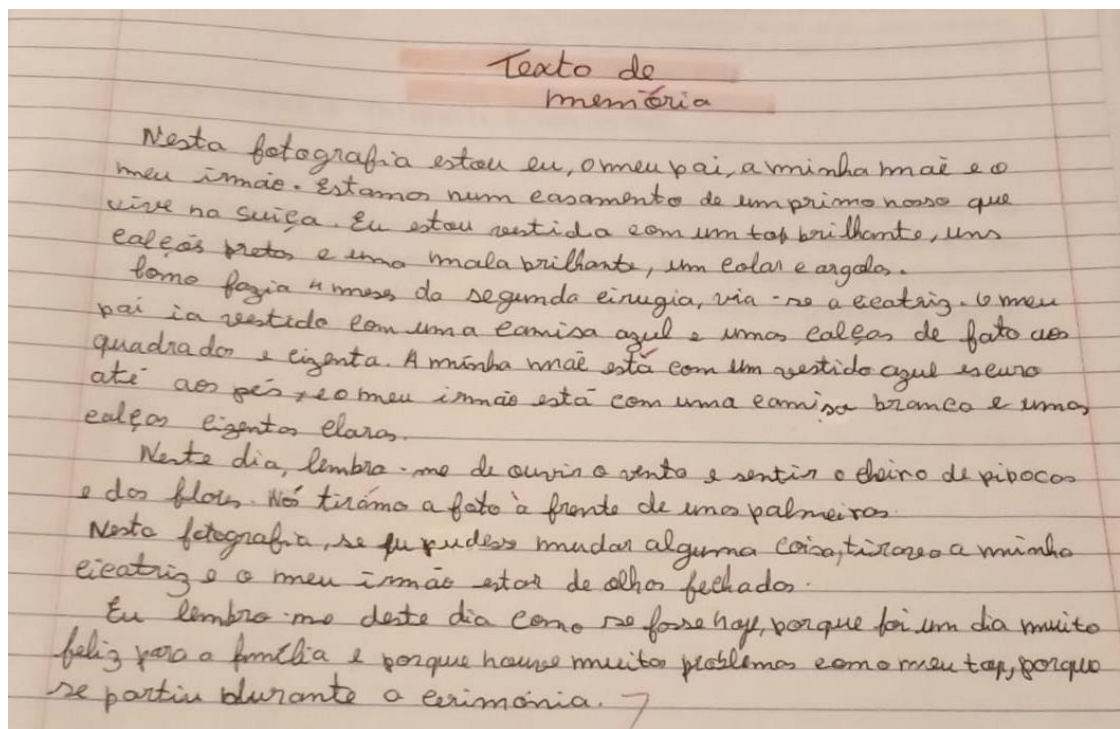 Texto de
memória
Nesta fotografia estou eu, o meu pai, a minha mãe e o
meu irmão. Estamos num casamento de um primo nosso que
vive na suiça. Eu estou vestida com um top brilhante, uns
calções pretos e uma mala brilhante, um colar e argolas.
Como fazia 4 meses da segunda cirugia, via-se a cicatriz. O meu
pai ia vestido com uma camisa azul e umas calças de fato aos
quadrados e cizenta. A minha mãe está com um vestido azul escuro
até aos pés, e o meu irmão está com uma camisa branca e umas
calças cizentas claras.
Neste dia, lembra-me de ouvir o vento e sentir o cheiro de pipocas
e das flores. Nós tirámo a foto à frente de umas palmeiras.
Nesta fotografia, se pudesse mudar alguma coisa, a minha
cicatriz e o meu irmão estar de olhos fechados.
Eu lembro-me deste dia como se fosse hoje, porque foi um dia muito
feliz para a família e porque houve muitos problemas com o meu top, porque
se partiu durante a cerimónia.